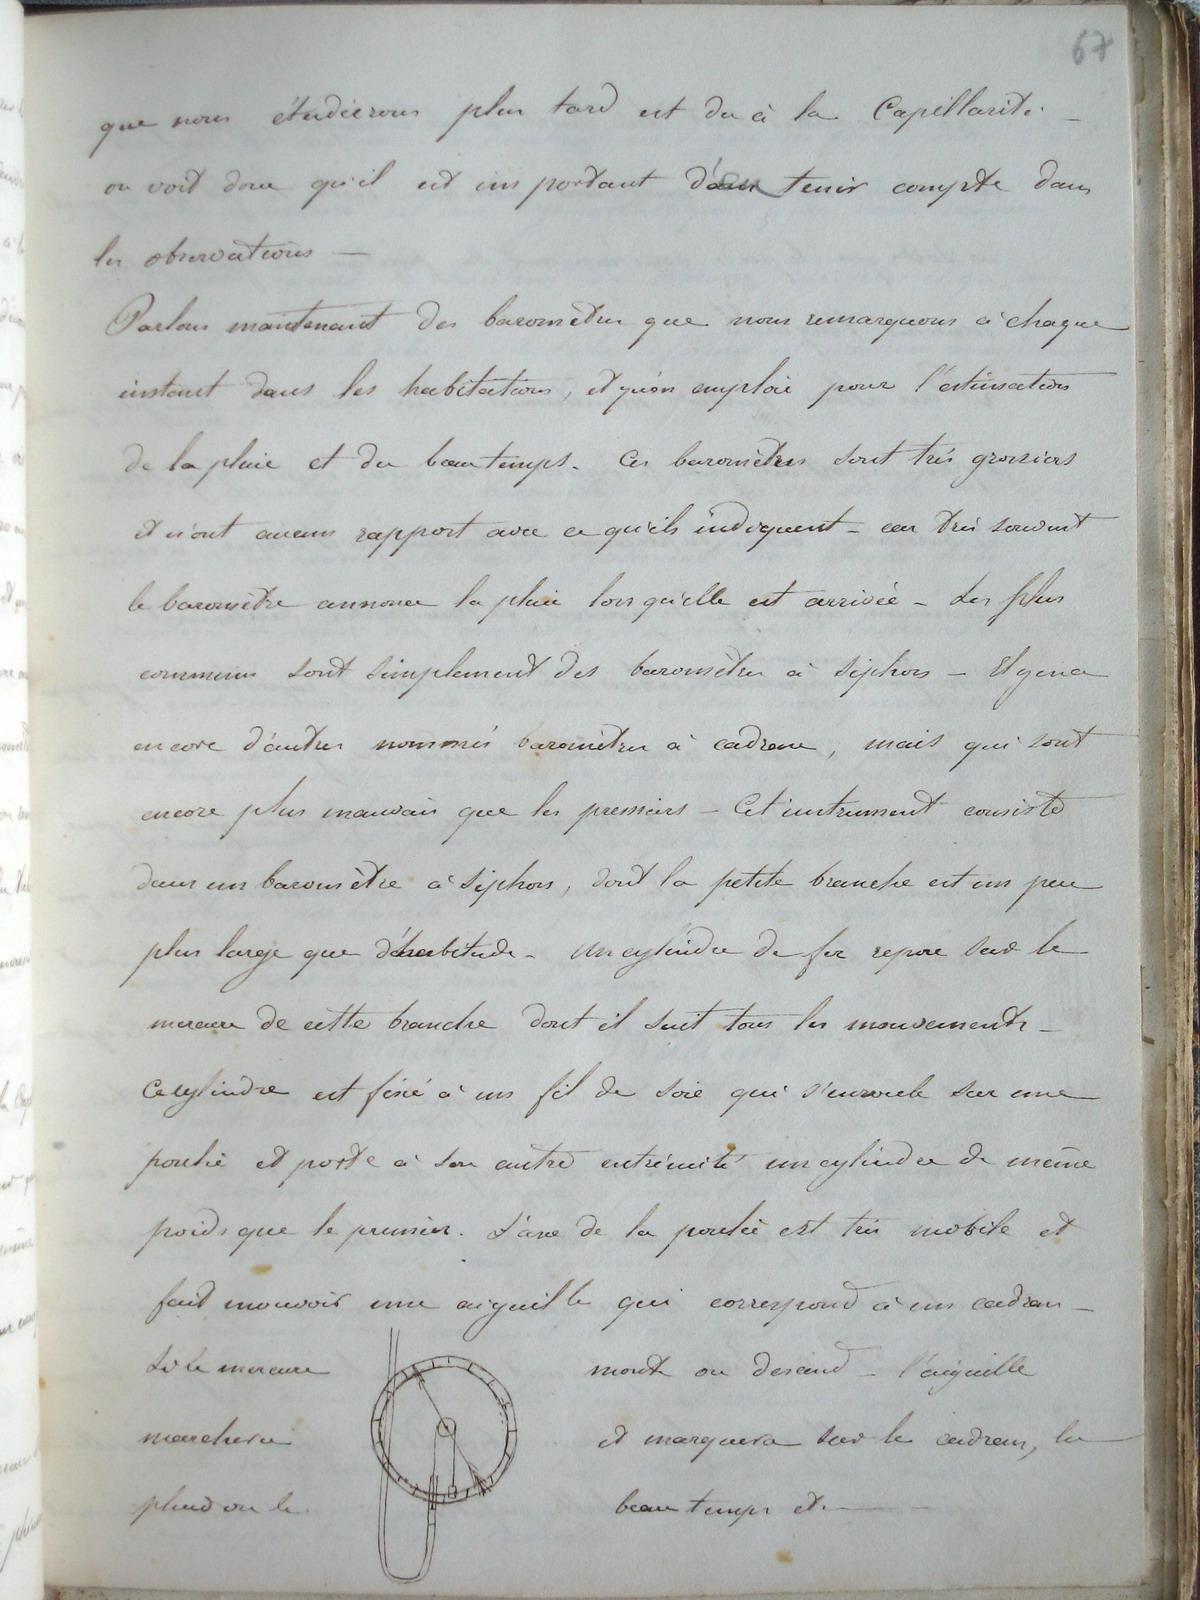 67
que nous étudierons plus tard est du à la Capillarité. –
on voit donc qu'il est important d'en tenir compte dans
les observations –
Parlons maintenant des baromètres que nous remarquons à chaque
instant dans les habitations, et qu'on emploie pour l'estimation
de la pluie et du beau temps. Ces baromètres sont très grossiers
et n'ont aucun rapport avec ce qu'ils indiquent – car très souvent
le baromètre annonce la pluie lorsqu'elle est arrivée – Les plus
communs sont simplement des baromètres à siphons – Il y en a
encore d'autres nommés baromètres à cadran, mais qui sont
encore plus mauvais que les premiers – Cet instrument consiste
dans un baromètre à siphon, dont la petite branche est un peu
plus large que d'habitude – Un cylindre de fer repose sur le
mercure de cette branche dont il suit tous les mouvements –
Ce cylindre est fixé à un fil de soie qui s'enroule sur une
poulie et porte à son autre extrémité un cylindre de même
poids que le premier. L'axe de la poulie est très mobile et
fait mouvoir une aiguille qui correspond à un cadran –
Si le mercure monte ou descend – l'aiguille
marchera et marquera sur le cadran, la
pluie ou le beau temps etc